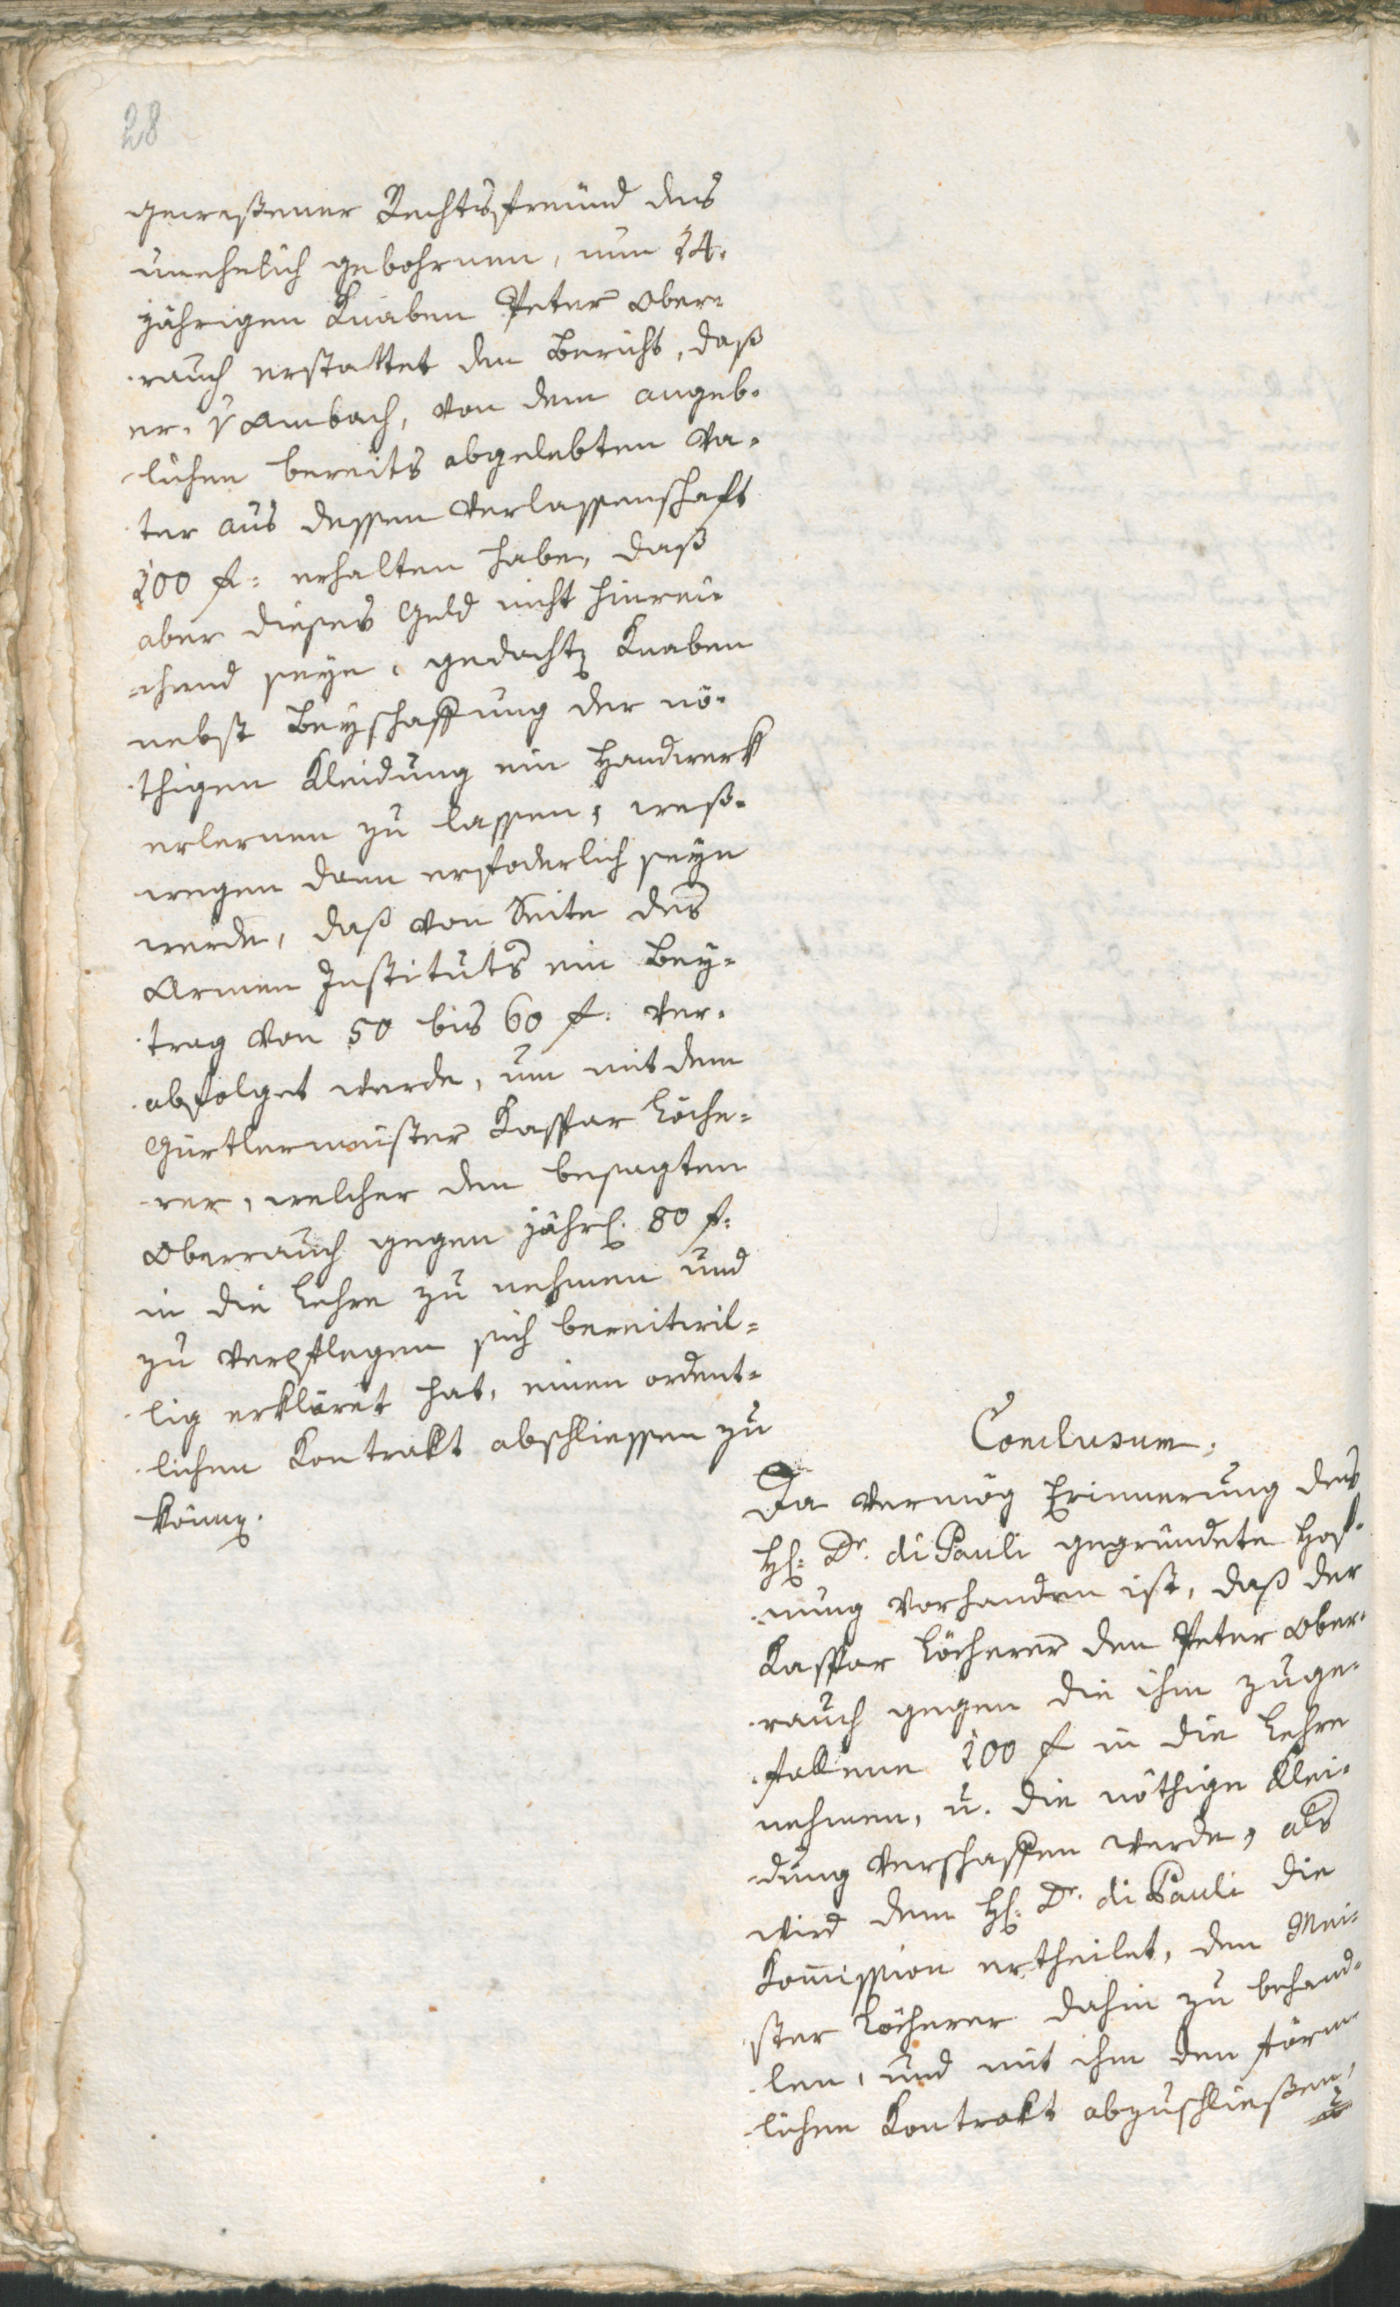 28
gewesener Rechtsfreünd des
unehelich gebohrnen, nun 14.
jährigen Knaben Peter Ober-
rauch erstattet den Bericht, daß
er, v Ambach, von dem angeb-
lichen bereits abgelebten Va-
ter aus dessen Verlassenschaft
100 f: erhalten habe, daß
aber dieses Geld nicht hinrei-
chend seye, gedachtn Knaben
nebst Beyschaffung der nö-
thigen Kleidung ein Handwerk
erlernen zu lassen, weß-
wegen dann erfoderlich seyn
werde, daß von Seite des
Armen Instituts ein Bey-
trag von 50 bis 60 f. ver-
abfolget werde, um mit dem
Gürtlermeister Kaspar Löche-
rer, welcher den besagten
Oberrauch gegen jährl. 80 f:
in die Lehre zu nehmen und
zu verpflegen sich bereitwil-
lig erkläret hat, einen ordent-
lichen Kontrakt abschliessen zu
könn̄.
Conclusum.
Da vermög Erinnerung des
H: Dr. di Pauli gegründete Hof-
nung vorhanden ist, daß der
Kaspar Löcherer den Peter Ober-
rauch gegen die ihm zuge-
fallene 100 f in die Lehre
nehmen, u. die nöthige Klei-
dung verschaffen werde, als
wird dem H: Dr. di Pauli die
Kom̄ission ertheilet, den Mei-
ster Löcherer dahin zu behand-
len, und mit ihm den förm-
lichen Kontrakt abzuschließen,